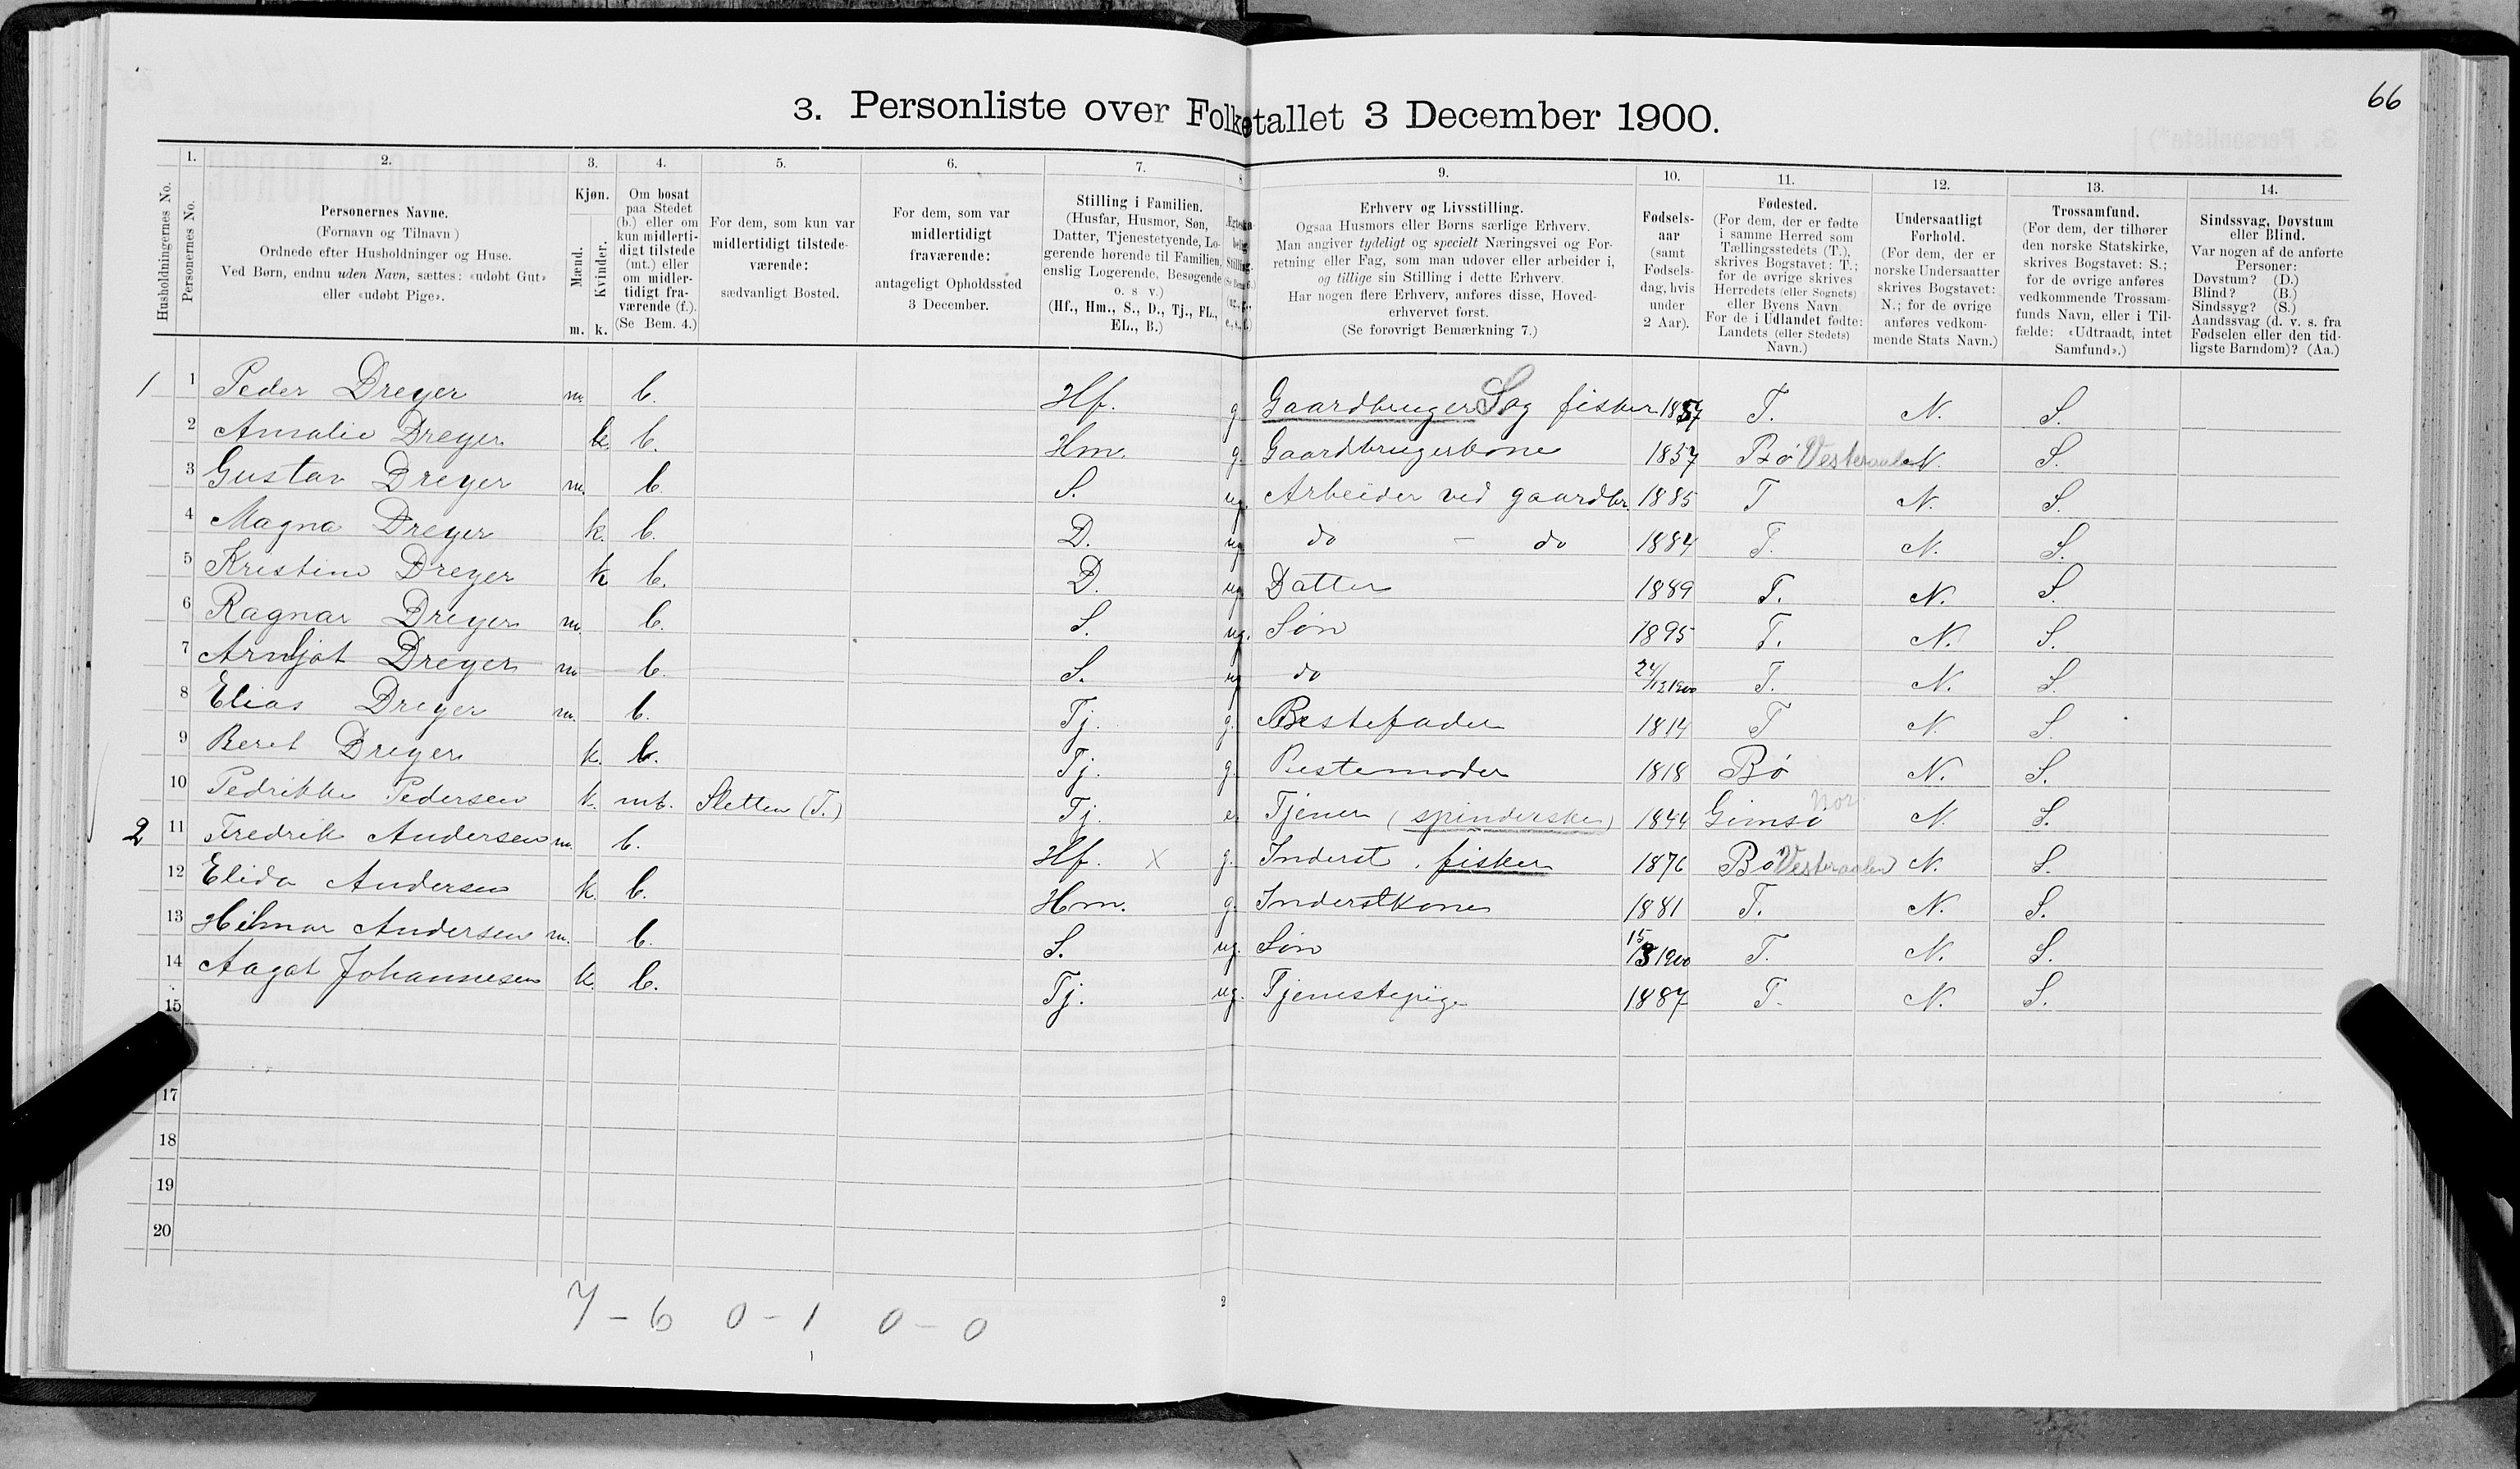 66
3. Personliste over Folketallet 3 December 1900.
1. 2. 3. 4. 5. 6. 7. 8. 9. 10. 11. 12. 13. 14.
Husholdningernes No.
Personernes No.
Personernes Navne.
(Fornavn og Tilnavn)
Ordnede efter Husholdninger og Huse.
Ved Børn, endnu uden Navn, sættes: «udøbt Gut»
eller «udøbt Pige».
Kjøn.
Mænd.
Kvinder.
m. k.
Om bosat
paa Stedet
(b.) eller om
kun midlerti-
digt tilstede
(mt.) eller
om midler-
tidigt fra-
værende (f.).
(Se Bem. 4.)
For dem, som kun var
midlertidigt tilstede-
værende:
sædvanligt Bosted.
For dem, som var
midlertidigt
fraværende:
antageligt Opholdssted
3 December.
Stilling i Familien.
(Husfar, Husmor, Søn,
Datter, Tjenestetyende, Lo-
gerende hørende til Familien,
enslig Logerende, Besøgende
o. s v.)
(Hf., Hm., S., D., Tj., FL.,
EL., B.)
Erhverv og Livsstilling.
Ogsaa Husmors eller Børns særlige Erhverv.
Man angiver tydeligt og specielt Næringsvei og For-
retning eller Fag, som man udøver eller arbeider i,
og tillige sin Stilling i dette Erhverv.
Har nogen flere Erhverv, anføres disse, Hoved-
erhvervet først.
(Se forøvrigt Bemærkning 7.)
Fødsels-
aar
(samt
Fødsels-
dag, hvis
under
2 Aar).
Fødested.
(For dem, der er fødte
i samme Herred som
Tællingsstedets (T.),
skrives Bogstavet: T.;
for de øvrige skrives
Herredets (eller Sognets)
eller Byens Navn.
For de i Udlandet fødte:
Landets (eller Stedets)
Navn.)
Undersaatligt
Forhold.
(For dem, der er
norske Undersaatter
skrives Bogstavet:
N.; for de øvrige
anføres vedkom-
mende Stats Navn.)
Trossamfund.
(For dem, der tilhører
den norske Statskirke,
skrives Bogstavet: S.;
for de øvrige anføres
vedkommende Trossam-
funds Navn, eller i Til-
fælde: «Udtraadt, intet
Samfund».)
Sindssvag, Døvstum
eller Blind.
Var nogen af de anførte
Personer:
Døvstum? (D.)
Blind? (B.)
Sindssyg? (S.)
Aandssvag (d. v. s. fra
Fødselen eller den tid-
ligste Barndom)? (Aa.)
1 1 Peder Dreyer m. b. Hf. g. Gaardbruger S og fisker 1857 T. N. S.
2 Amalie Dreyer k. b. Hm. g. Gaardbrugerkone 1857 Bø Vesteraalen N. S.
3 Gustav Dreyer m. b. S. ug. Arbeider ved gaardbr. 1885 T N. S.
4 Magna Dreyer k. b. D. ug do - do 1884 T. N. S.
5 Kristine Dreyer k b. D. ug Datter 1889 T. N. S.
6 Ragnar Dreyer m. b. S. ug. Søn 1895 T. N. S.
7 Arnljot Dreyer m b. S. ug do 24/12 1900 T. N. S.
8 Elias Dreyer m. b. Tj. g. Bestefader 1814 T N. S.
9 Beret Dreyer k. b. Tj. g. Bestemoder 1818 Bø N. S.
10 Pedrikke Pedersen k. mt. Sletten (T.) Tj. e. Tjener (spinderske) 1844 Gimsø Nor. N. S.
2 11 Fredrik Andersen m. b. Hf. X g. Inderst, fisker 1876 Bø Vesteraalen N. S.
12 Elida Andersen k. b. Hm. g. Inderstkone 1881 T. N. S.
13 Hilmar Andersen m. b. S. ug. Søn 15/3 1900 T. N. S.
14 Aagot Johannesen k. b. Tj. ug. Tjenestepige 1887 T. N. S.
15
17
18
19
20
7 - 6 0 - 1 0 - 0
2